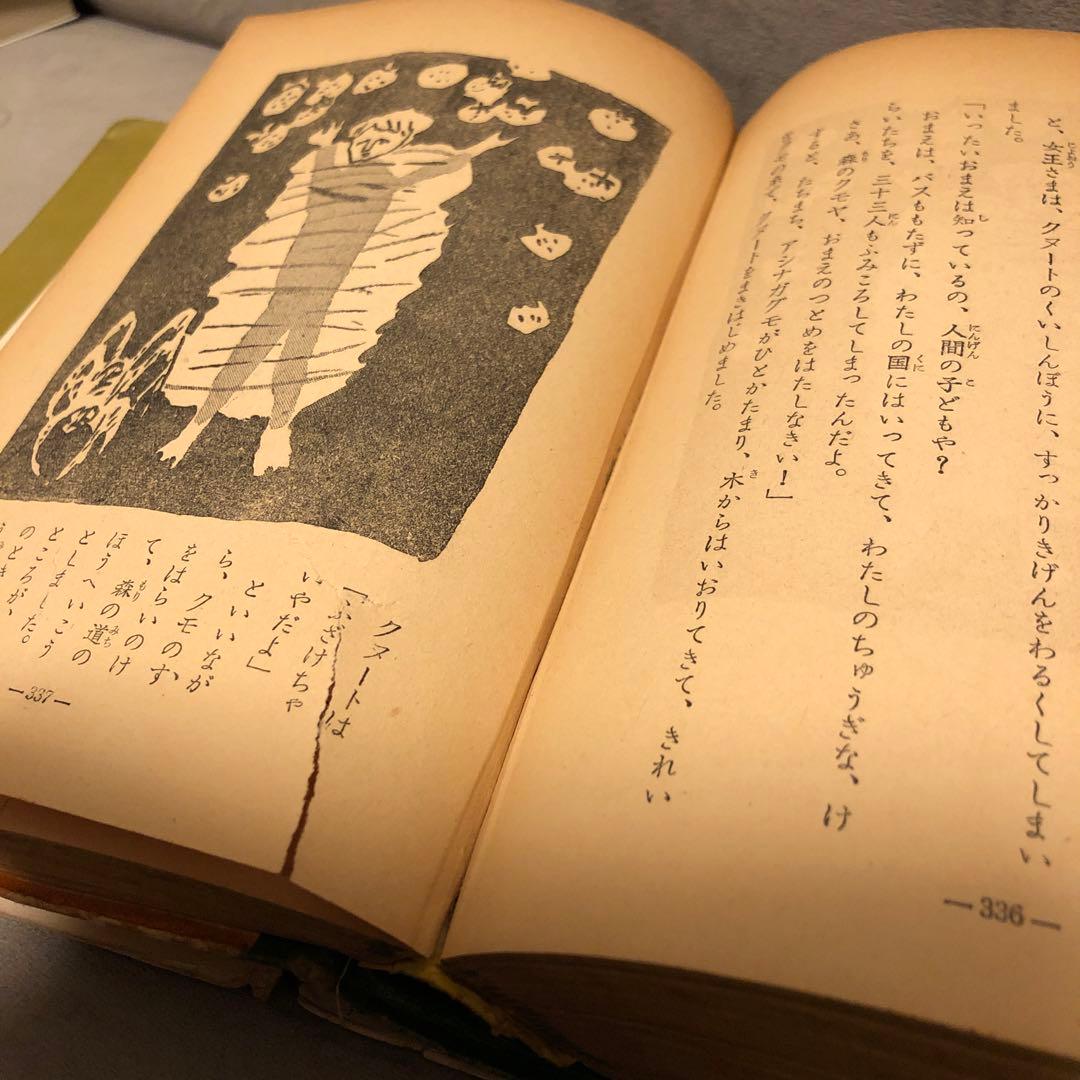 と、女王さまは、クヌートのくいしんぼうに、すっかりきげんをわるくしてしまい
ました。
「いったいおまえは知っているの、人間の子どもや?
おまえは、パスももたずに、わたしの国にはいってきて、わたしのちゅうぎな、け
らいたちを、三十三人もふみころしてしまったんだよ。
さあ、森のクモや、おまえのつとめをはたしなさい!」
すると、たちまち、アシナガグモがひとかたまり、木からはいおりてきて、きれい
クヌートをまきはじめました。
—336—
クヌートは
「ふざけちゃ
いやだよ」
といいなが
ら、クモのす
をはらいのけ
て、森の道の
ほうへいこう
としました。
ところが、
のとき
—337—